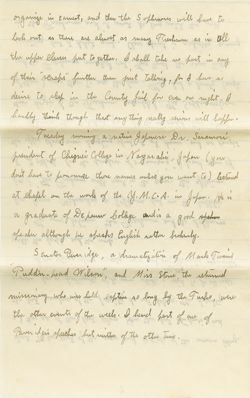 organize in earnest, and then the Sophmores will have to
look out as there are almost as many Freshmen as in all
the upper classes put together. I shall take no part in any
of their "scraps" further than just telling, for I have no
desire to sleep in the County Jail for even one night. I
hardly think though that anything really serious will happen.
Tuesday morning a native Japanese Dr. Sasamori
president of Chinzei College in Nagasaki, Japan (you
don't have to pronounce those names unless you want to) lectured
at chapel on the work of the Y.M.C.A. in Japan. He is
a graduate of Depauw College and is a good speaker
although he speaks English rather brokenly.
Senator Beveridge, a dramatization of Mark Twain's
Pudden-head Wilson, and Miss Stone the returned
missionary, who was held captive so long by the Turks, were
the other events of the week. I heard part of one of
Beveridge's speeches but neither of the other two.